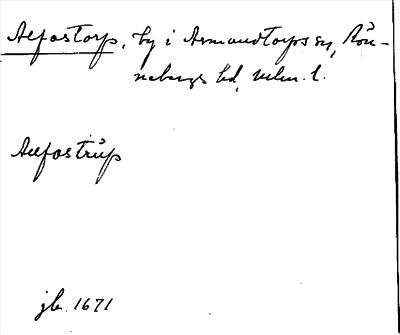 Alfastorp, by i Asmundtorps sn, Rön-
nebergs hd, Mlm. l.
Allfastrŭp
jb. 1671